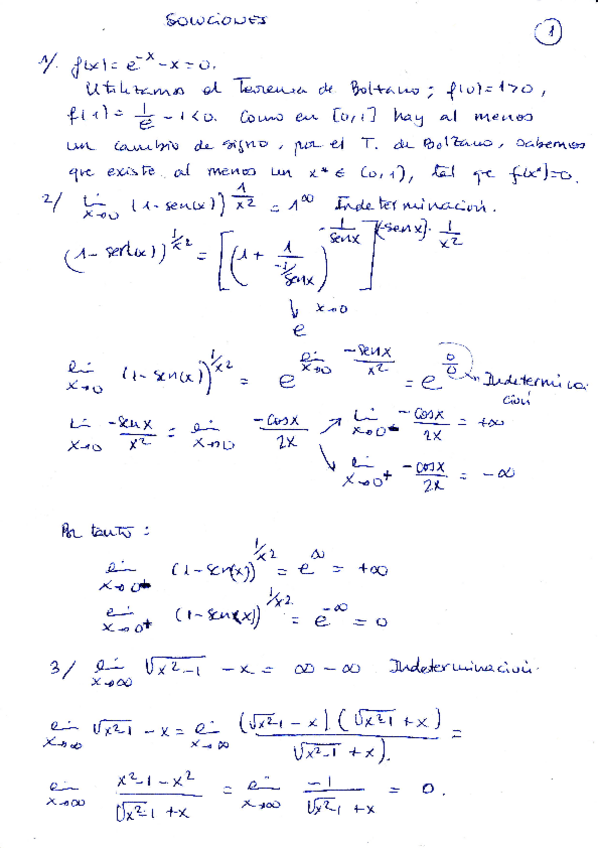 SOLUCIONES
1
1/. f(x) = e^-x - x = 0.
Utilizamos el Teorema de Boltzano; f(0) = 1 > 0,
f(1) = 1/e - 1 < 0. Como en [0,1] hay al menos
un cambio de signo, por el T. de Bolzano, sabemos
que existe al menos un x* ∈ (0,1), tal que f(x*) = 0.
2/ lim x→0 (1 - sen(x))^1/x² = 1^∞ Indeterminación.
(1 - sen(x))^1/x² = [(1 + 1/(-1/senx))^(-1/senx)]^(-senx)·1/x²
↓ x→0
e
lim x→0 (1 - sen(x))^1/x² = e^(lim x→0 -senx/x²) = e^(0/0) Indetermina-
ción
lim x→0 -senx/x² = lim x→0 -cosx/2x ↗ lim x→0- -cosx/2x = +∞
↘ lim x→0+ -cosx/2x = -∞
Por tanto:
lim x→0- (1 - sen(x))^1/x² = e^∞ = +∞
lim x→0+ (1 - sen(x))^1/x² = e^-∞ = 0
3/ lim x→∞ √x²-1 - x = ∞ - ∞ Indeterminación.
lim x→∞ √x²-1 - x = lim x→∞ (√x²-1 - x)(√x²-1 + x)/(√x²-1 + x). =
lim x→∞ x²-1-x²/√x²-1 + x = lim x→∞ -1/√x²-1 + x = 0.